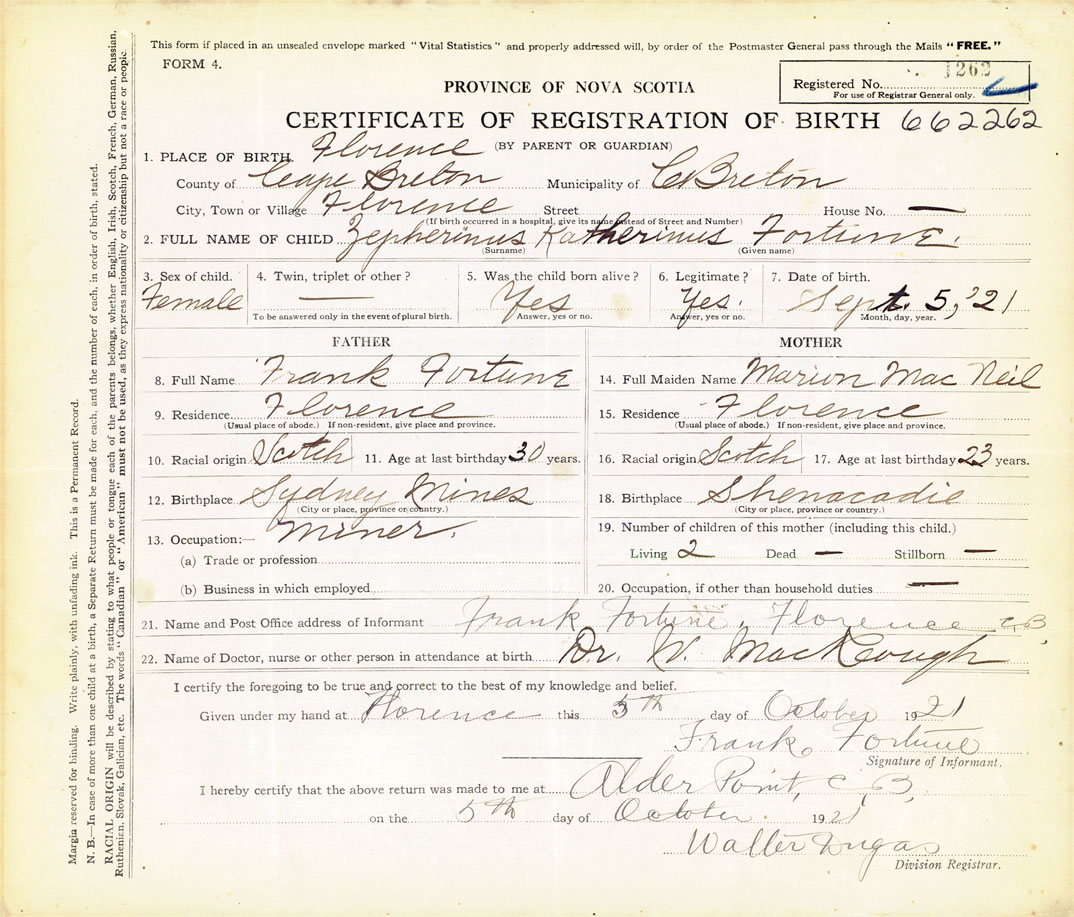 This form if placed in an unsealed envelope marked "Vital Statistics" and properly addressed will, by order of the Postmaster General pass through the Mails "FREE."
FORM 4.
1262
Registered No.
For use of Registrar General only.
PROVINCE OF NOVA SCOTIA
CERTIFICATE OF REGISTRATION OF BIRTH 662262
(BY PARENT OR GUARDIAN)
1. PLACE OF BIRTH. Florence
County of Cape Breton Municipality of C Breton
City, Town or Village Florence Street House No. —
(If birth occurred in a hospital, give its name instead of Street and Number)
2. FULL NAME OF CHILD Zepherinus Katherinus Fortune.
(Surname) (Given name)
3. Sex of child. 4. Twin, triplet or other? 5. Was the child born alive? 6. Legitimate? 7. Date of birth.
Female — Yes Yes. Sept. 5, '21
To be answered only in the event of plural birth. Answer, yes or no. Answer, yes or no. Month, day, year.
FATHER MOTHER
8. Full Name Frank Fortune 14. Full Maiden Name Marion Mac Neil
9. Residence Florence 15. Residence Florence
(Usual place of abode.) If non-resident, give place and province. (Usual place of abode.) If non-resident, give place and province.
10. Racial origin Scotch 11. Age at last birthday 30 years. 16. Racial origin Scotch 17. Age at last birthday 23 years.
12. Birthplace Sydney Mines 18. Birthplace Shenacadie
(City or place, province or country.) (City or place, province or country.)
13. Occupation:— Miner. 19. Number of children of this mother (including this child.)
(a) Trade or profession Living 2 Dead — Stillborn —
(b) Business in which employed 20. Occupation, if other than household duties —
21. Name and Post Office address of Informant Frank Fortune, Florence C.B,
22. Name of Doctor, nurse or other person in attendance at birth Dr. W. MacKeough
I certify the foregoing to be true and correct to the best of my knowledge and belief.
Given under my hand at Florence this 5th day of October 1921
Frank Fortune
Signature of Informant.
I hereby certify that the above return was made to me at Alder Point, C.B,
on the 5th day of October 1921
Walter Dugas
Division Registrar.
Margin reserved for binding. Write plainly, with unfading ink. This is a Permanent Record.
N. B.—In case of more than one child at a birth, a Separate Return must be made for each, and the number of each, in order of birth, stated.
RACIAL ORIGIN will be described by stating to what people or tongue each of the parents belongs, whether English, Irish, Scotch, French, German, Russian,
Ruthenian, Slovak, Galician, etc. The words "Canadian" or "American" must not be used, as they express nationality or citizenship but not a race or people.